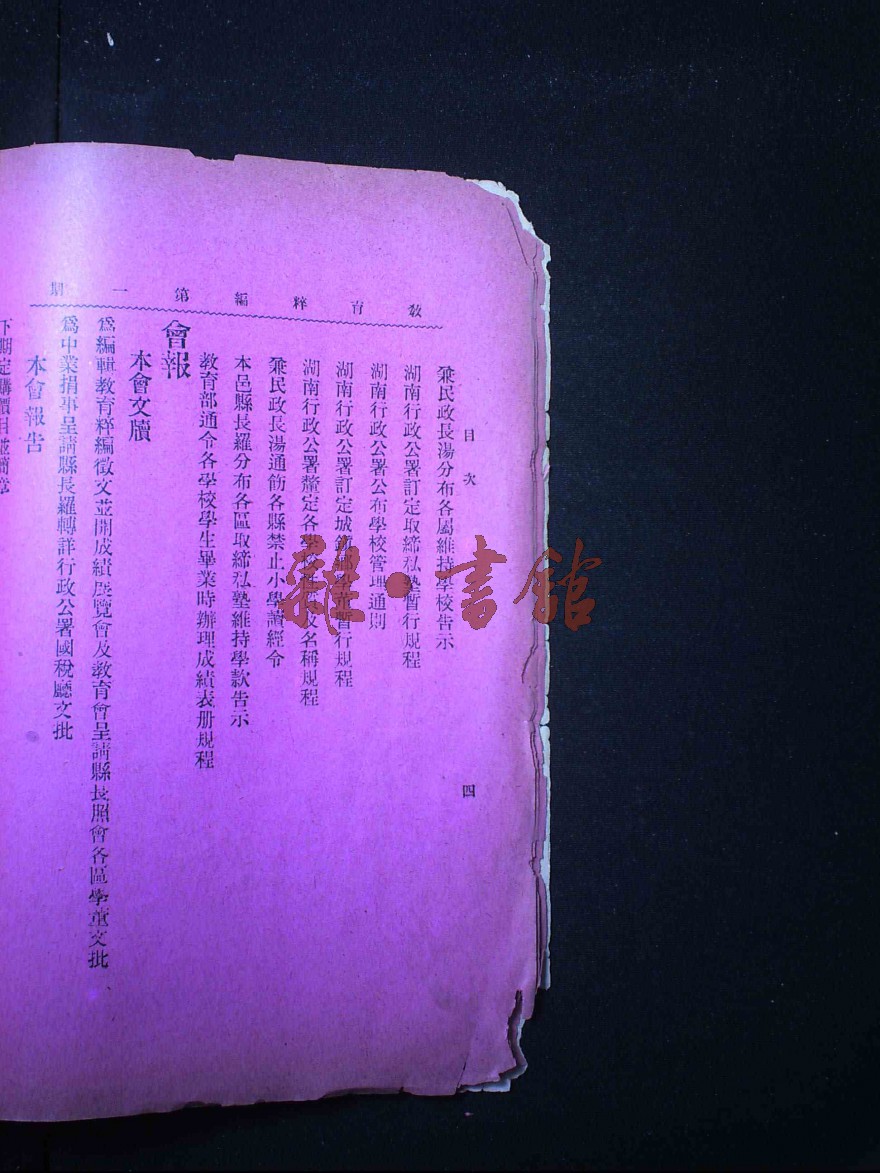 教育粹編第一期
目次
四
兼民政長湯分布各屬維持學校告示
湖南行政公署訂定取締私塾暫行規程
湖南行政公署公布學校管理通則
湖南行政公署訂定城鎮鄉學董暫行規程
湖南行政公署釐定各學校名稱規程
兼民政長湯通飭各縣禁止小學讀經令
本邑縣長羅分布各區取締私塾維持學款告示
教育部通令各學校學生畢業時辦理成績表册規程
會報
本會文牘
爲編輯教育粹編徵文並開成績展覽會及教育會呈請縣長照會各區學董文批
爲中業捐事呈請縣長羅轉詳行政公署國稅廳文批
本會報告
下期定購價目並簡章
雜·書館